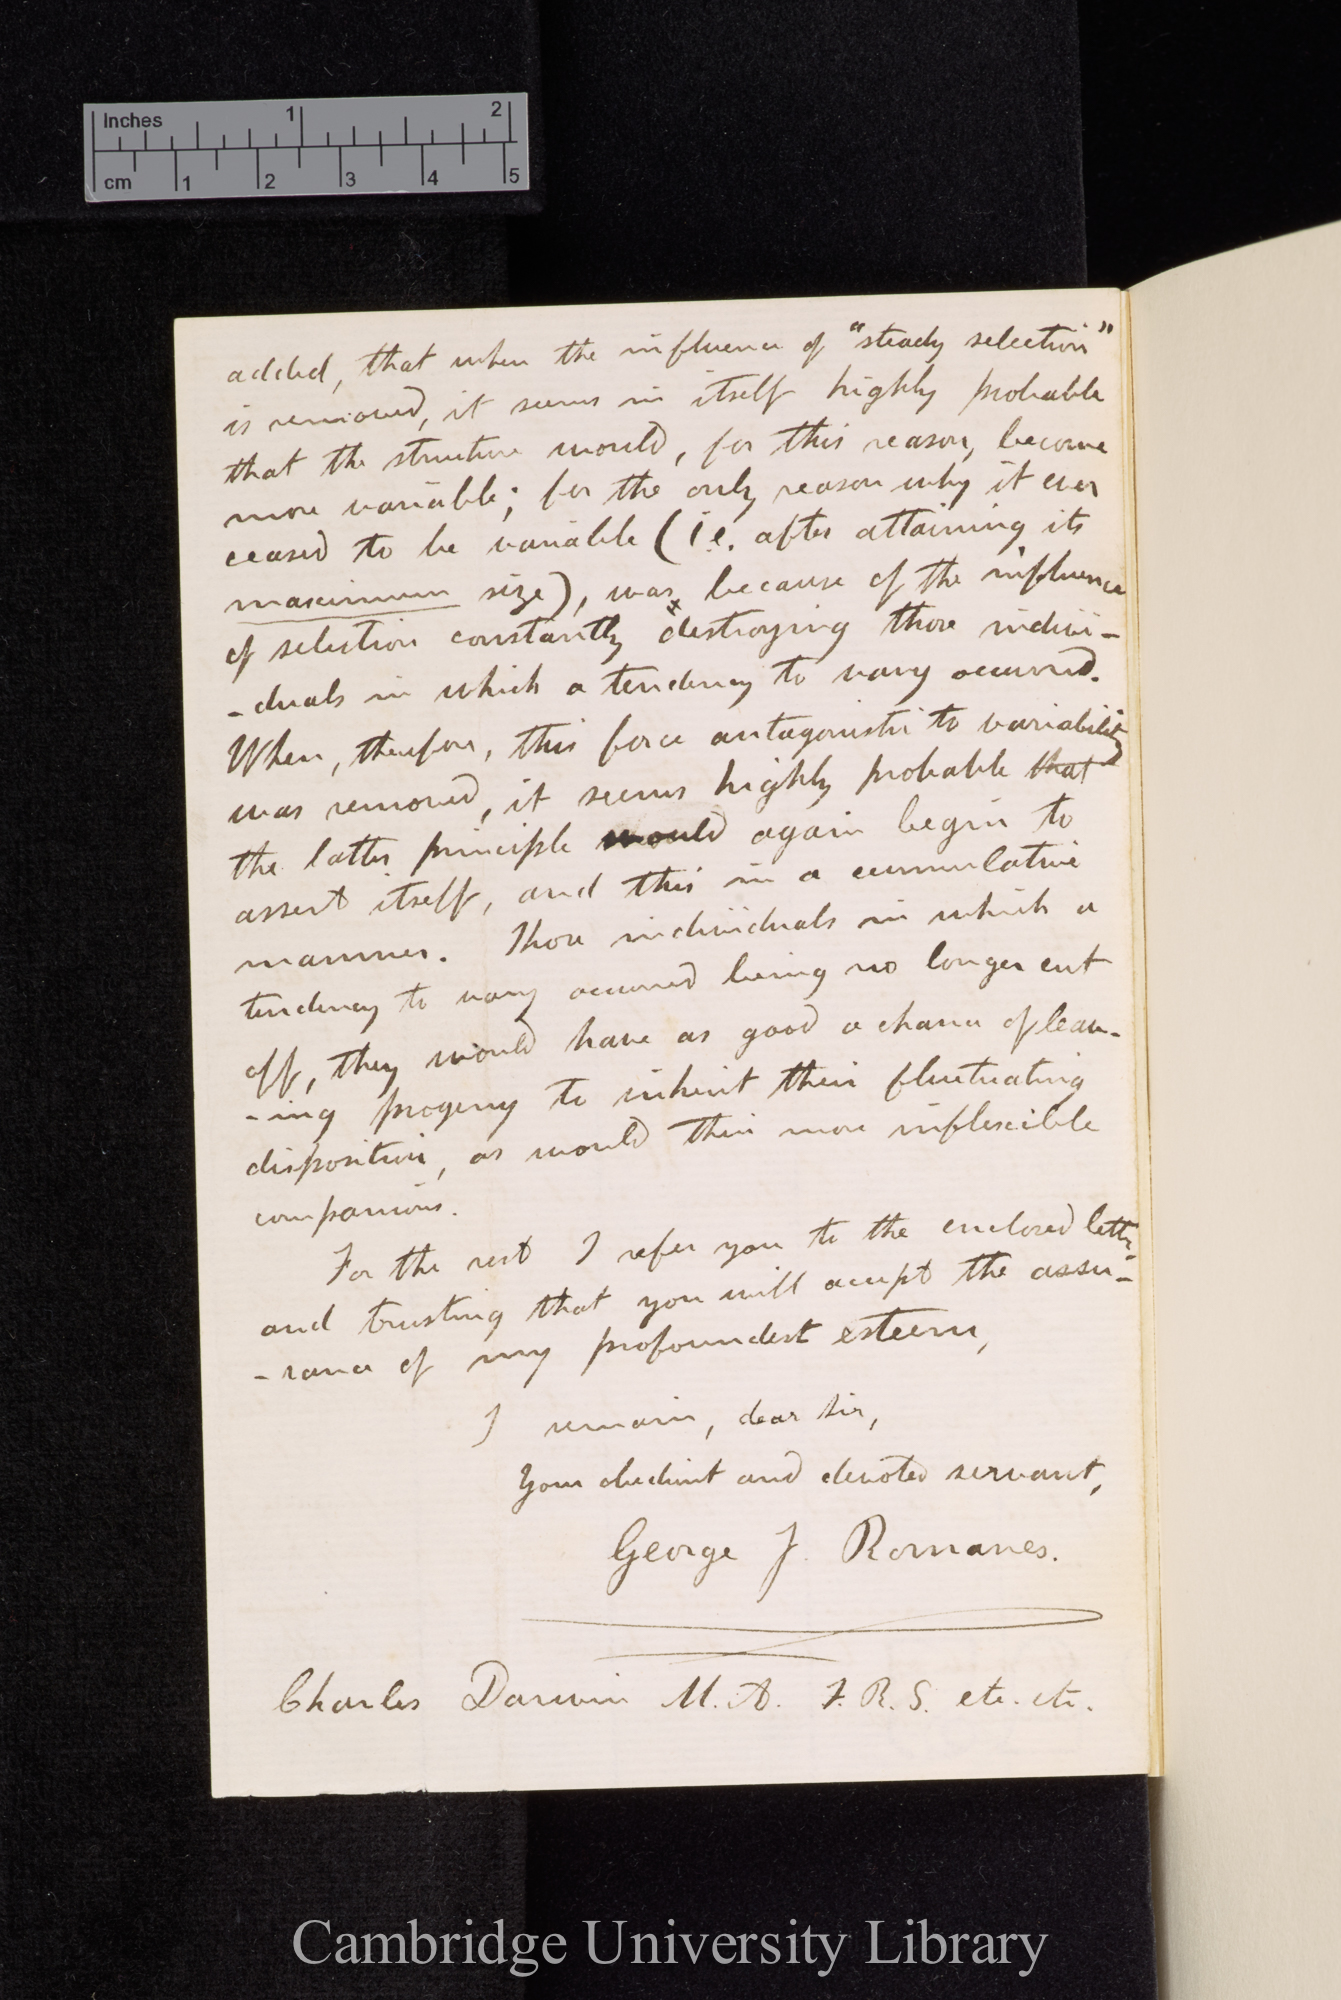 Inches 1 2
cm 1 2 3 4 5
added, that when the influence of "steady selection"
is removed, it seems in itself highly probable
that the structure would, for this reason, become
more variable; for the only reason why it ever
ceased to be variable (i.e. after attaining its
maximum size), was, because of the influence
of selection constantly destroying those indivi-
-duals in which a tendency to vary occurred.
When, therefore, this force antagonistic to variability
was removed, it seems highly probable that
the latter principle would again begin to
assert itself, and this in a cumulative
manner. Those individuals in which a
tendency to vary occurred being no longer cut
off, they would have as good a chance of leav-
-ing progeny to inherit their fluctuating
disposition, as would their more inflexible
companions.
For the rest I refer you to the enclosed letter,
and trusting that you will accept the assu-
-rance of my profoundest esteem,
I remain, dear Sir,
Your obedient and devoted servant,
George J. Romanes.
Charles Darwin M.A. F.R.S. etc. etc.
Cambridge University Library